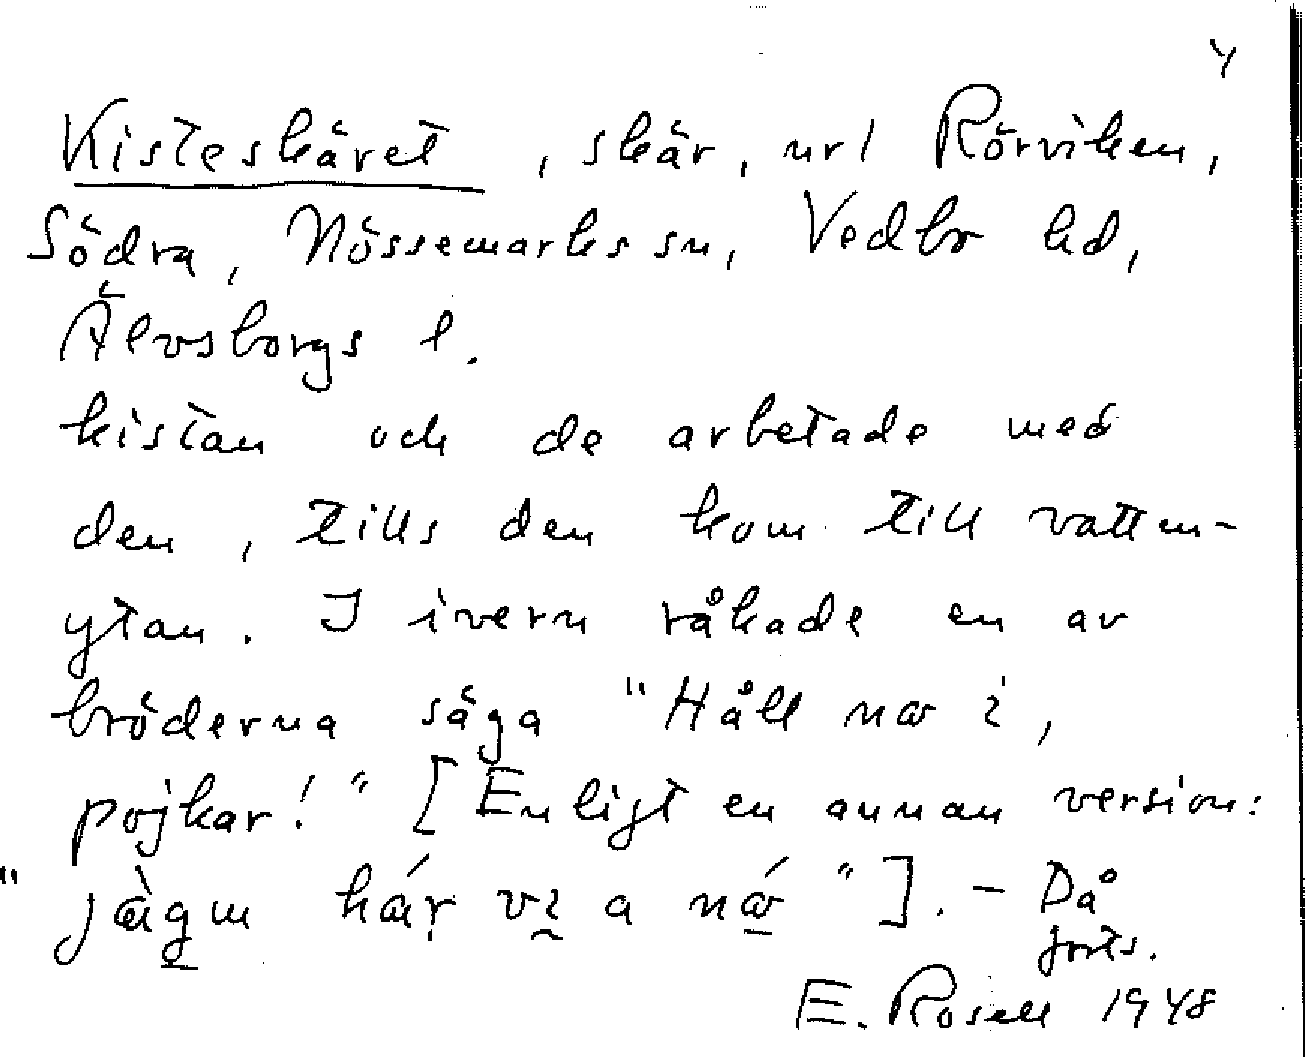 4
Kisteskäret, skär, nr 1 Rörviken,
Södra, Nössemarks sn, Vedbo hd,
Älvsborgs l.
kistan och de arbetade med
den, tills den kom till vatten-
ytan. I ivern råkade en av
bröderna säga "Håll næ i,
pojkar! " [Enligt en annan version:
"
a
"]. - Då
forts.
E. Rosell 1948